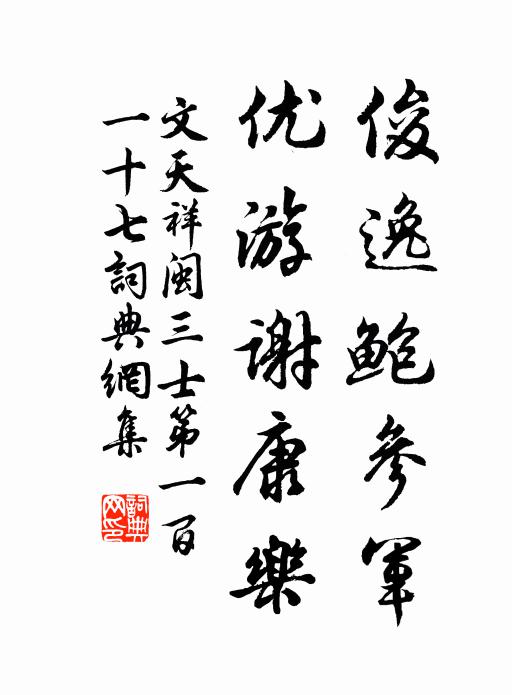 俊逸鲍參軍
优游谢康樂
文天祥闽三士第一百
一十七詞典網集
詞典网印